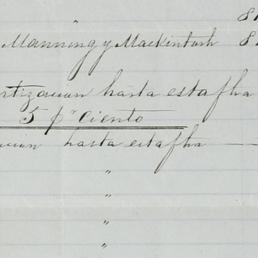 " 8
Manning y Mackintosh 8
rtizacion hasta esta fha
5 pr Ciento
acion hasta esta fha
"
"
"